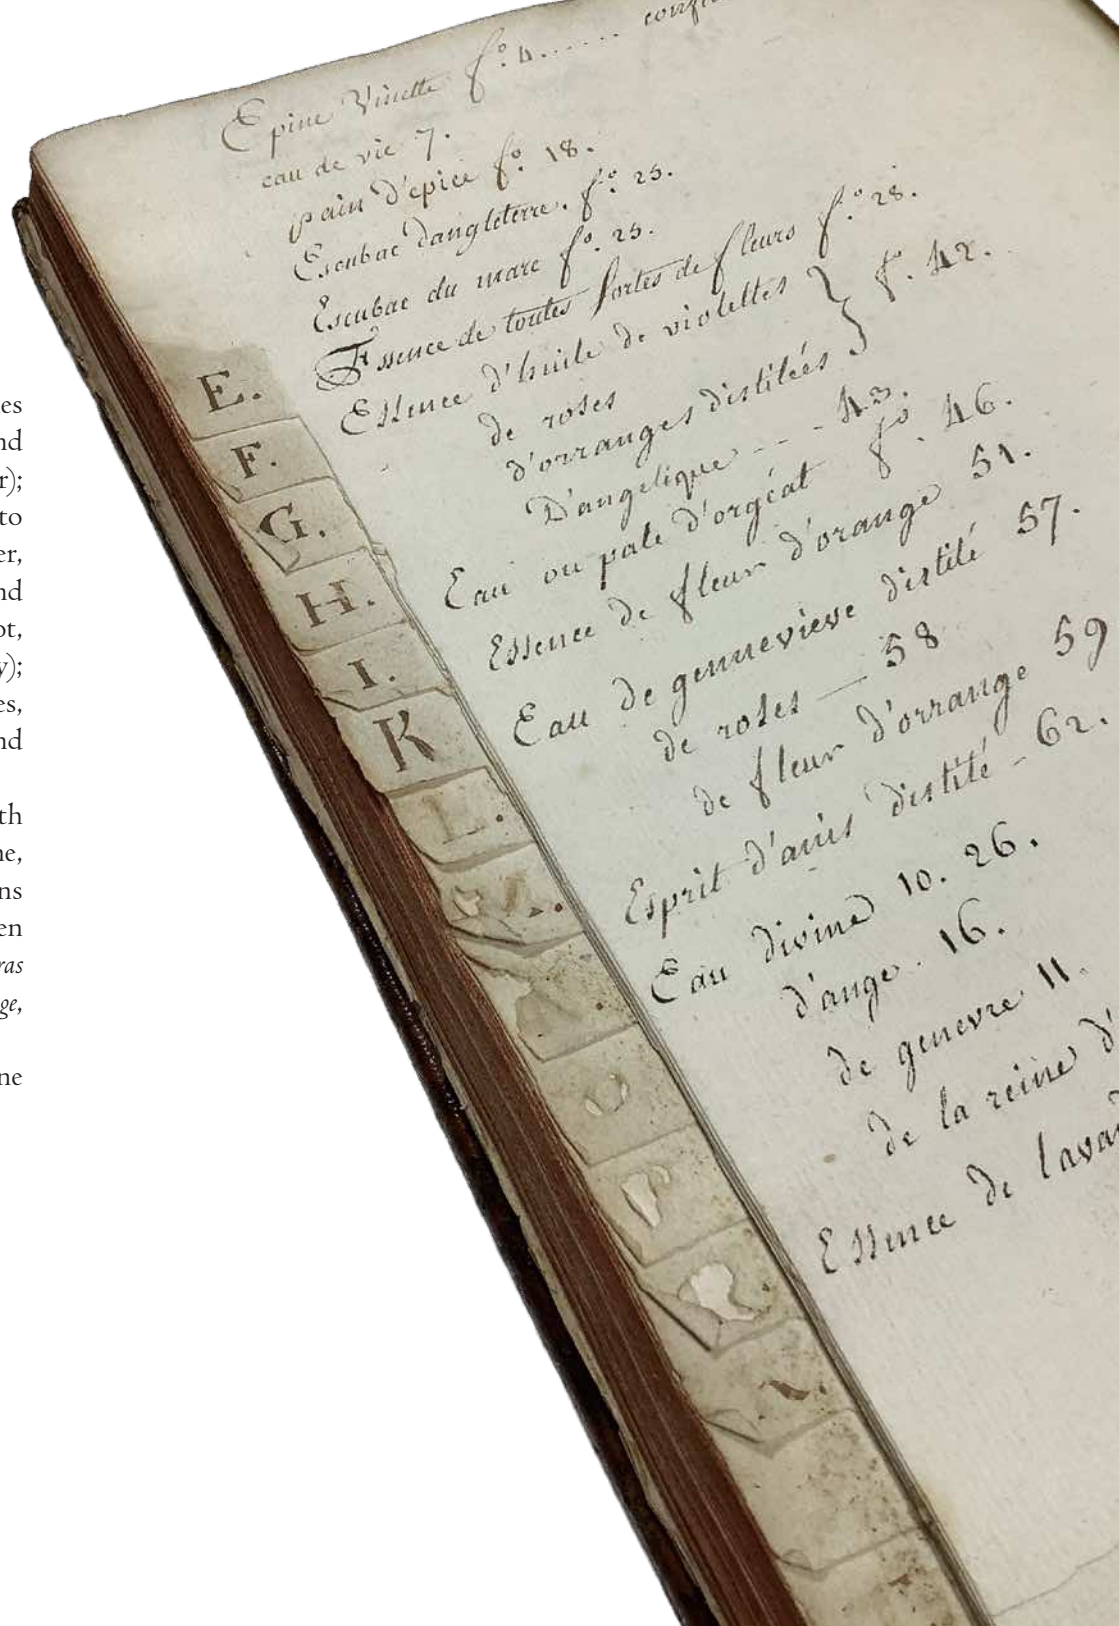 es
nd
r);
to
er,
nd
ot,
y);
es,
nd
th
ne,
ns
en
ras
ge,
ne
Epine Vinette fo. 4......
eau de vie 7.
pain d'epice fo. 18.
Escubac dangleterre. fo. 25.
Escubac du marc fo. 25.
Essence de toutes sortes de fleurs fo. 28.
Essence d'huile de violettes } f. 42.
de roses
d'orranges distilées
D'angelique - - - 43.
Eau ou pate d'orgéat fo. 46.
Essence de fleur d'orange 51.
Eau de gennevieve distilé 57.
de roses — 58
de fleur d'orrange 59
Esprit d'anis distilé - 62.
Eau divine 10. 26.
d'ange. 16.
de genevre 11.
de la reine d'
Essence de lavan
E.
F.
G.
H.
I.
K
L.